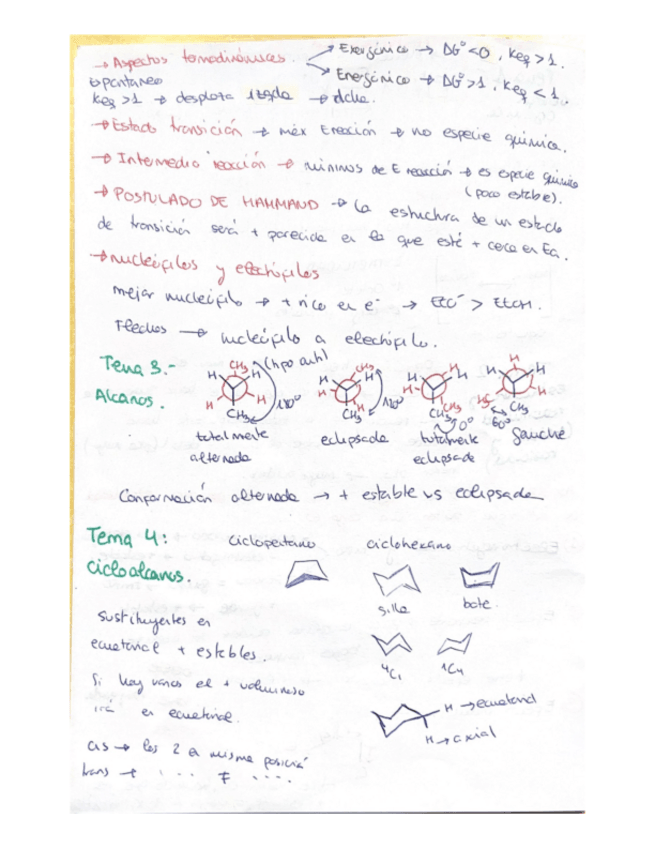 → Aspectos termodinámicos. → Exergónico → ΔG° < 0, Keq > 1.
espontaneo → Energónico → ΔG° > 1, Keq < 1.
Keq > 1 → desplaza izqda → dcha.
→ Estado transición → máx E reacción → no especie química.
→ Intermedio reacción → mínimos de E reacción → es especie química
(poco estable).
→ POSTULADO DE HAMMAND → La estructura de un estado
de transición será + parecida en la que esté + cerca en Ea.
→ nucleófilos y electrófilos
mejor nucleófilo → + rico en e⁻ → EtO⁻ > EtOH.
Flechas → nucleófilo a electrófilo.
Tema 3.-
Alcanos.
CH3 (tipo anti)
H H H H
CH3 180°
totalmente
alternada
CH3
H H H H
CH3 120°
eclipsada
H H H H
CH3 CH3 0°
totalmente
eclipsada
H H H H
H3C CH3
60°
gauche
Conformación alternada → + estable vs eclipsada
Tema 4:
cicloalcanos.
ciclopentano
ciclohexano
silla
bote.
4C1
1C4
sustituyentes en
ecuatorial + estables.
Si hay varios el + voluminoso
irá en ecuatorial.
H → ecuatorial
H → axial
cis → los 2 en misma posición
trans → " " " ≠ " " "